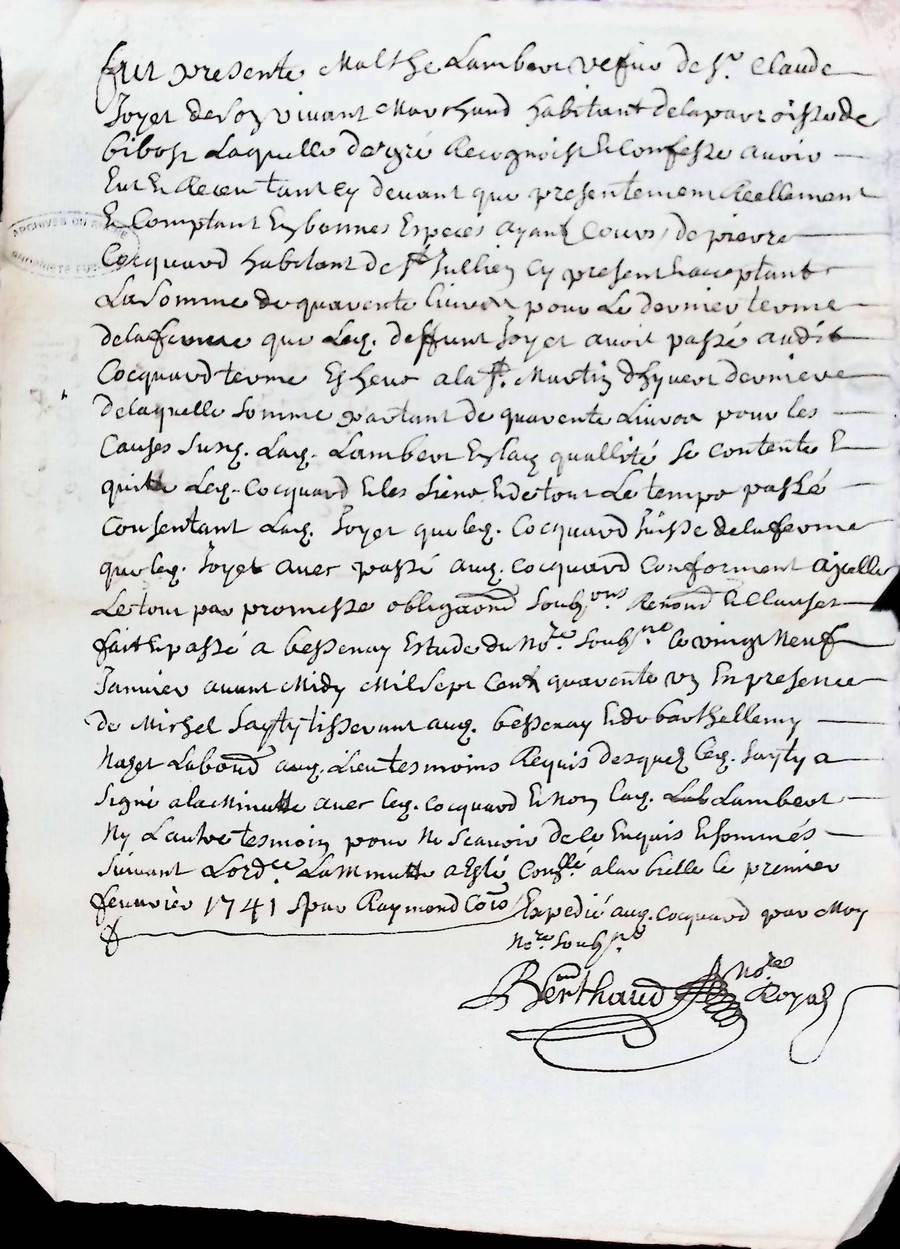 fut presente Malthe Lambert vefue de Sr Claude
Joyet de son vivant Marchand habitant de la parroisse de
bibost Laquelle de gré Recognoist Et Confesse avoir
Eut Et Receu tant Cy devant que presentement Reellement
Et Comptant En bonnes Especes ayant Cours, de pierre
Cocquard habitant de St Jullien Cy present Et acceptant
La Somme de quarente livres pour Le dernier terme
de la ferme que Leq. deffunt Joyet avoit passé audit
Cocquard terme Escheus a la St. Martin d'hyvert derniere
de laquelle Somme partant de quarente Livres pour les
Causes Susq. Laq. Lambert En laq quallité Se contente Et
quitte Leq. Cocquard Et les Siens Et de tout Le temps passé
Consentant Laq. Joyet que leq. Cocquard Juisse de la ferme
que leq. Joyet avec passé auq. Cocquard Conforment a jcelle
Le tout par promesse obliga[ti]ond Soubons Renond Et Clauses
fait Et passé a bessenay Estude du Nore Soubsné Le vingt Neuf
Janvier avant Midy Mil Sept Cent quarente un En presence
de Michel Sayty tisserant auq. bessenay Et de barthellemy
Nazet Laboud auq. Lieu tesmoins Requis desquez leq. Sayty a
Signé a la Minutte avec leq. Cocquard Et Non laq. Lambert
Ny L'autre tesmoin pour Ne Scavoir de ce Enquis Et sommés
Suivant L'ordce La Minutte a Esté Conllé a larbrelle le premier
fevrier 1741 Par Raymond Cois Expedié auq. Cocquard par Moy
Nore Soubsné
Berthaud Nore
Royal